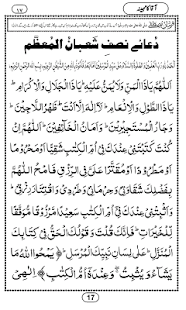 دُعائے نصفِ شعبانُ المُعظّم
اَللّٰهُمَّ يَا ذَا الْمَنِّ وَلَا يُمَنُّ عَلَيْهِ يَا ذَا الْجَلَالِ وَالْاِكْرَامِ
يَا ذَا الطَّوْلِ وَالْاِنْعَامِ لَا اِلٰهَ اِلَّا اَنْتَ ظَهْرُ اللَّاجِيْنَ
وَجَارُ الْمُسْتَجِيْرِيْنَ وَاَمَانُ الْخَائِفِيْنَ اَللّٰهُمَّ اِنْ
كُنْتَ كَتَبْتَنِيْ عِنْدَكَ فِيْ اُمِّ الْكِتٰبِ شَقِيًّا اَوْ مَحْرُوْمًا
اَوْ مَطْرُوْدًا اَوْ مُقَتَّرًا عَلَيَّ فِي الرِّزْقِ فَامْحُ اَللّٰهُمَّ
بِفَضْلِكَ شَقَاوَتِيْ وَحِرْمَانِيْ وَطَرْدِيْ وَاقْتِتَارَ رِزْقِيْ
وَاَثْبِتْنِيْ عِنْدَكَ فِيْ اُمِّ الْكِتٰبِ سَعِيْدًا مَّرْزُوْقًا مُّوَفَّقًا
لِّلْخَيْرَاتِ فَاِنَّكَ قُلْتَ وَقَوْلُكَ الْحَقُّ فِيْ كِتَابِكَ
الْمُنَزَّلِ عَلٰى لِسَانِ نَبِيِّكَ الْمُرْسَلِ يَمْحُوا اللّٰهُ مَا
يَشَآءُ وَيُثْبِتُ وَعِنْدَهٗ اُمُّ الْكِتٰبِ اِلٰهِيْ
17